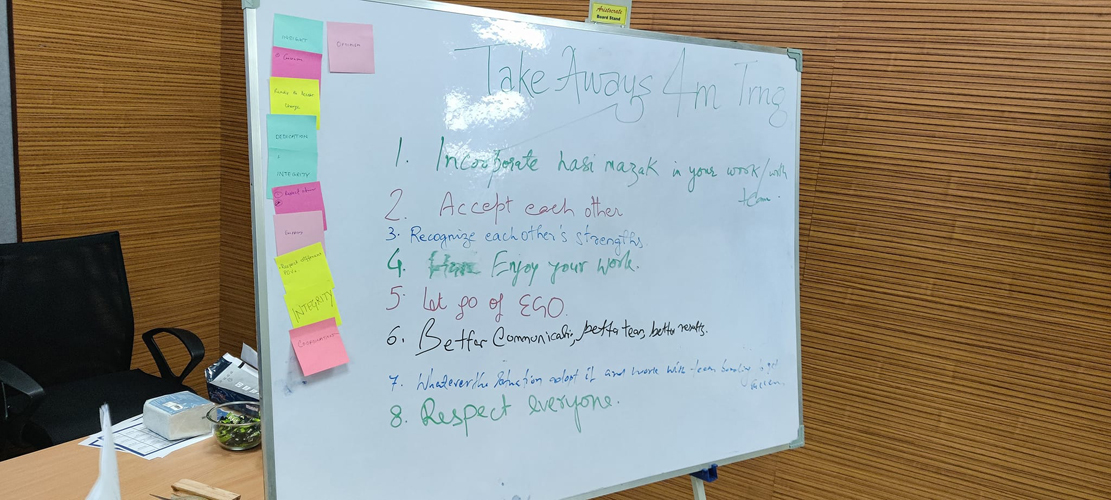 Aristocrats
Board Stand
INSIGHT
OPINION
DEDICATION
INTEGRITY
INTEGRITY
Take Aways 4m Trng
1. Incorporate hasi mazak in your work/with
team.
2. Accept each other
3. Recognize each other's strengths
4. Enjoy your work.
5. Let go of EGO.
6. Better Communicati, better team, better results.
7. Whatever the situation adopt it and work with team
8. Respect everyone.